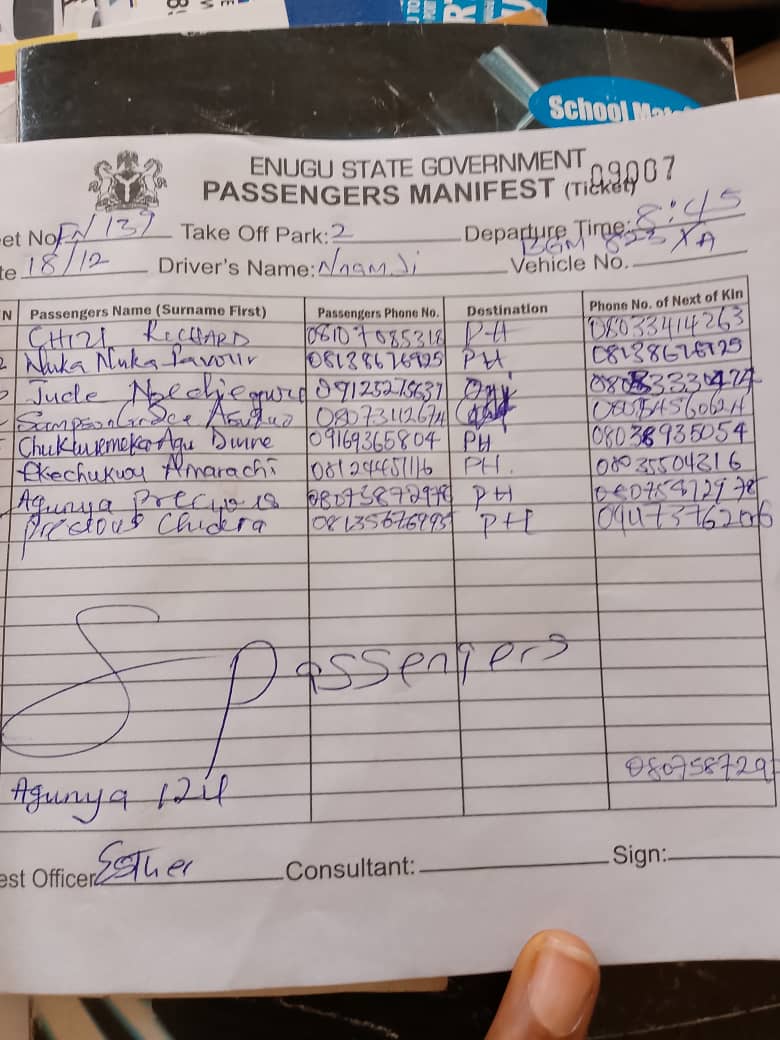 School
ENUGU STATE GOVERNMENT
PASSENGERS MANIFEST (Ticket) 09007
et No EN/139 Take Off Park: 2 Departure Time: 8:45
te 18/12 Driver's Name: Nnamdi Vehicle No. XA
N Passengers Name (Surname First) Passengers Phone No. Destination Phone No. of Next of Kin
CHIZI RICHARD 08107085318 P-H 08033414263
2 Nuka Nuka Favour 08138676925 PH
Jude 09125275637
Sampson Grace 08073112674
Chukwuemeka Agu Divine 09169365804 PH 08038935054
Ekechukwu Amarachi 08124451116 PH. 08035504316
Agunya Precious 08073872978 PH
Precious Chidera 08135676995 PH
8 passengers
080758729
Agunya 124
est Officer Esther Consultant: Sign: